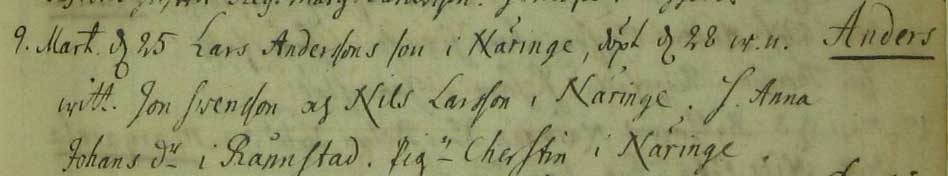 9. Mart. d 25 Lars Anderssons son i Näringe, döpt d 28 w.u. Anders
witt. Jon Swensson og Nils Larsson i Näringe. H. Anna
Johans dr i Rännstad. Pign Cherstin i Näringe.